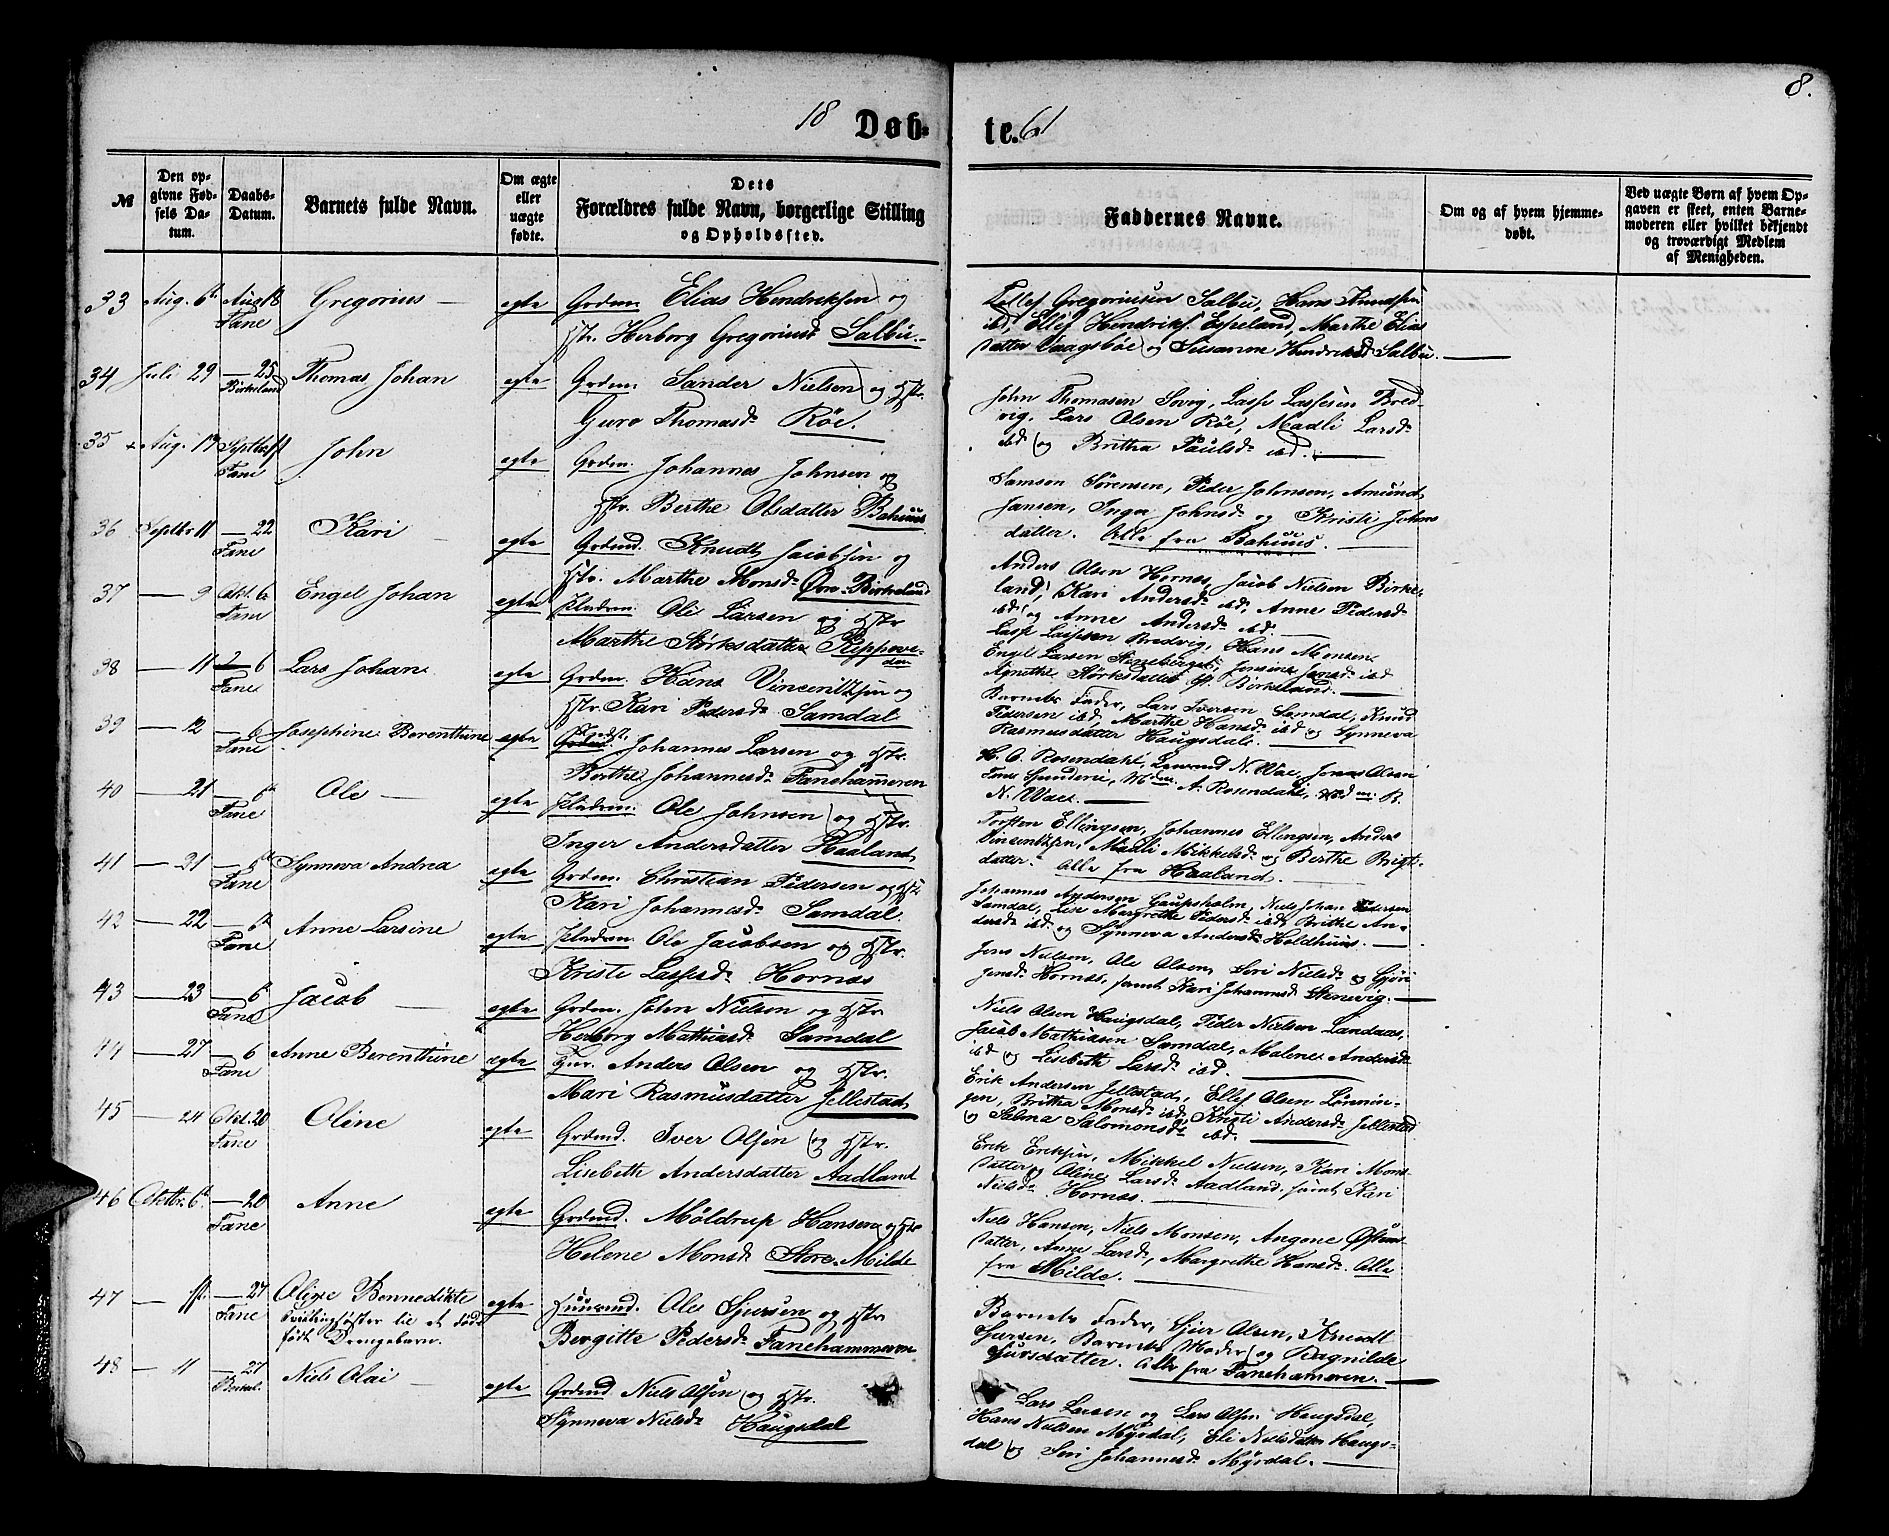 8.
18 Døb-
te. 61
№
Den op-
givne Fød-
sels Da-
tum.
Daabs-
Datum.
Barnets fulde Navn.
Om ægte
eller
uægte
fødte.
Dets
Forældres fulde Navn, borgerlige Stilling
og Opholdssted.
Faddernes Navne.
Om og af hvem hjemme-
døbt.
Ved uægte Børn af hvem Op-
gaven er skeet, enten Barne-
moderen eller hvilket bekjendt
og troværdigt Medlem
af Menigheden.
33 Aug. 6te Aug 18 Fane Gregorius — egte Grdm. Elias Hendriksen og
Hstr. Herborg Gregoriusd Salbu.
Gregoriusen Salbu, Hans Knudsen
ibd, Ellef Hendriks. Espeland, Marthe Elias
datter Vaagsbøe og Susanne Hendriksd Salbu.
34 Juli 29 — 25 Birkeland Thomas Johan egte Grdm. Sander Nielsen og Hstr.
Guro Thomasd. Røe.
John Thomasen Sovig, Lasse Lassesen Bred-
vig, Lars Olsen Røe, Madli Larsd.
ibd og Britha Paulsd. ibd.
35 + Aug. 19 Septbr 1 Fane John egte Grdm. Johannes Johnsen og
Hstr. Berthe Olsdatter Bahuus
Samson Sørensen, Peder Johnsen, Amund
Jansen, Inger Johnsd. og Kristi Johns
datter. Alle fra Bahuus.
36 Septbr 11 — 22 Fane Kari — egte Grdmd. Knudt Jacobsen og
Hstr. Marthe Monsd. Øvre-Birkeland
Anders Olsen Hornæs, Jacob Nielsen Birke-
land, Kari Andersd. ibd, Anne Pedersd.
ibd og Anne Andersd. ibd.
37 — 9 Okt. 6 Fane Engel Johan egte Pladsm. Ole Larsen og Hstr
Marthe Størksdatter
Lasse Lassesen Bredvig, Hans Monsen
Engel Larsen Steneberget, Jensine Jansd. ibd
Agnethe Størksdatter Birkeland.
38 — 11 — 6 Fane Lars Johan egte Grdm. Hans Vincentsen og
Hstr. Kari Pedersd. Samdal
Barnets Fader, Lars Iversen Samdal, Knud
Pedersen ibd, Marthe Hansd. ibd og Synneva
Rasmusdatter Haugsdal.
39 — 12 — 6 Fane Josephine Berenthine egte Johannes Larsen og Hstr.
Berthe Johannesd. Fanehammeren
H. O. Rosendahl, N. Wae, Jonas Olsen
A. Rosendahl,
N. Waes.
40 — 21 — 6te Fane Ole — egte Pladsm. Ole Johnsen og Hstr.
Inger Andersdatter Haaland
Torsten Ellingsen, Johannes Ellingsen, Anders
Vincentsen, Madli Mikkelsd. og Berthe Brigt-
datter. Alle fra Haaland.
41 — 21 — 6te Fane Synneva Andrea egte Grdm. Christian Pedersen og Hstr
Kari Johannesd. Samdal.
Johannes Andersen Gaupholm, Niels Johan Pedersen
Samdal, Lise Margrethe Pedersd. ibd, Brithe An-
dersd. ibd og Synneva Andersd. Holdhuus.
42 — 22 — 6te Fane Anne Larsine egte Pladsm. Ole Jacobsen og Hstr.
Kristi Lassesd. Hornæs
Jens Nielsen, Ole Olsen, Siri Nielsd. og Gjøri
Jensd. Hornæs, samt Kari Johannesd. Stenevig.
43 — 23 — 6te Fane Jacob — egte Grdm. John Nielsen og Hstr
Herborg Mathiasd. Samdal
Niels Olsen Haugsdal, Peder Nielsen Landaas,
Jacob Mathiasen Samdal, Malene Andersd.
ibd og Lisebeth Larsd. ibd.
44 — 27 — 6 Fane Anne Berenthine egte Anders Olsen og Hstr.
Mari Rasmusdatter Jellestad
Erik Andersen Jellestad, Ellef Olsen Lønnin-
gen, Britha Monsd. ibd, Kristi Andersd. Jellestad
og Salma Salomonsd. ibd.
45 — 24 Okt. 20 Fane Oline egte Grdmd. Iver Olsen og Hstr.
Lisebeth Andersdatter Aadland
Erik Eriksen, Mikkel Nielsen, Kari Mons-
datter og Oline Larsd. Aadland, samt Kari
Nielsd. Hornæs.
46 Oktbr. 6te — 20 Fane Anne egte Grdmd. Møldrup Hansen og Hstr
Helene Monsd. Store-Milde
Niels Hansen, Niels Monsen, Angone Østens-
datter, Anne Larsd., Margrethe Hansd. Alle
fra Milde.
47 — — 27 Fane Oline Bennedikte egte Huusmd. Ole Sjursen og Hstr
Tvillingsøster til et død-
født Drengebarn. Birgitte Pedersd. Fanehammeren
Barnets Fader, Sjur Olsen, Knudt
Sjursen, Barnets Moder og Ragnilde
Sjursdatter. Alle fra Fanehammeren.
48 — 11 — 27 Niels Olai — egte Grdmd. Niels Olsen og Hstr.
Synneva Nielsd. Haugsdal
Lars Larsen og Lars Olsen Haugsdal,
Hans Nielsen Myrdal, Eli Nielsdatter Haugs-
dal og Siri Johannesd. Myrdal.